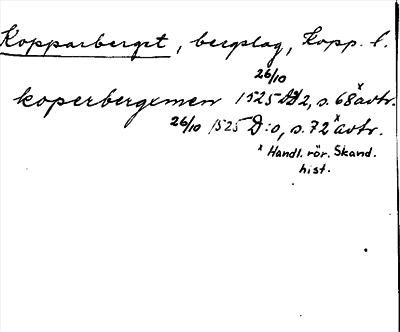 Kopparberget, bergslag, Kopp. l.
26/10
koperbergxmen 1525 D:2, s. 68 x avtr.
26/10 1525 D:o, s. 72 x avtr.
x Handl. rör. Skand.
hist.